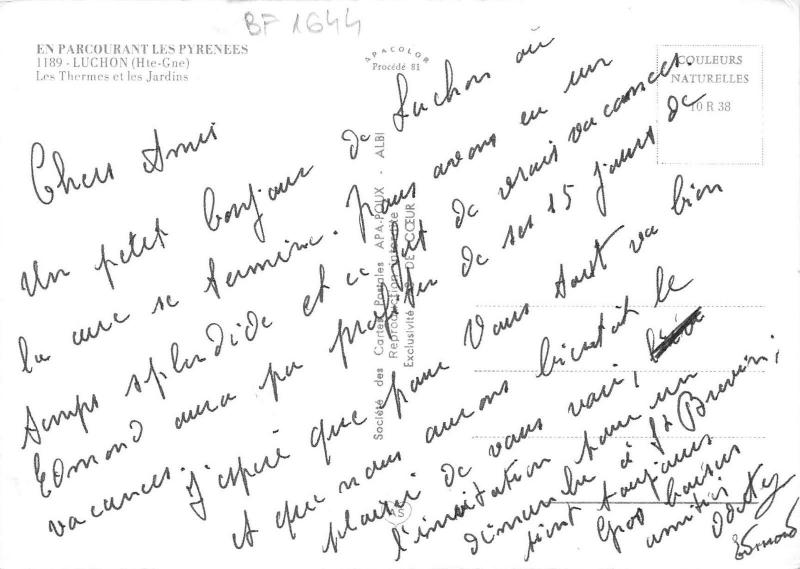 BF 1644
EN PARCOURANT LES PYRENEES
1189 - LUCHON (Hte-Gne)
Les Thermes et les Jardins
APACOLOR
Procédé 81
COULEURS
NATURELLES
10 R 38
Société des Cartes Postales APA-POUX - ALBI
Reproduction interdite
Exclusivité DE CŒUR
Chers Amis
Un petit bonjour de Luchon où
la cure se termine. Nous avons eu un
temps splendide et ce fut de vrais vacances.
Edmond aura pu profiter de ses 15 jours de
vacances. J'espère que pour vous tout va bien
et que nous aurons bientôt le
plaisir de vous voir,
l'invitation pour un
dimanche à St Brevin,
tient toujours
Gros baisers
amitiés
Odette
Edmond
AS